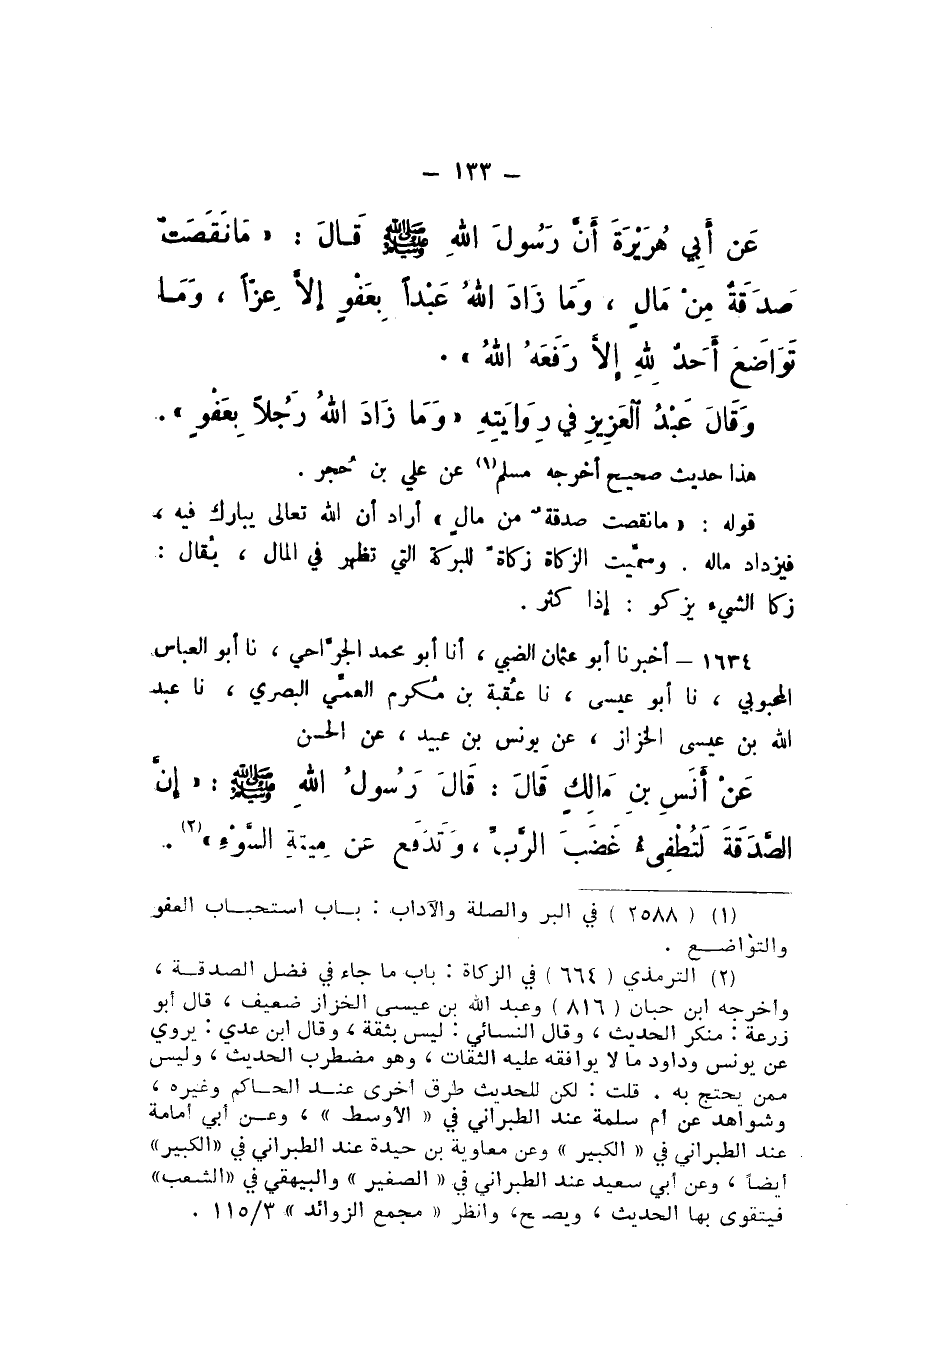 – ١٣٣ –
عَن أَبِي هُرَيْرَةَ أَنَّ رَسُولَ اللهِ ﷺ قَـالَ : « مَانَقَصَتْ
صَدَقَةٌ مِنْ مَالٍ ، وَمَا زَادَ اللهُ عَبْداً بِعَفْوٍ إلاَّ عِزّاً ، وَمَـا
تَوَاضَعَ أَحَدٌ لِلهِ إلاَّ رَفَعَهُ اللهُ » .
وَقَالَ عَبْدُ العَزِيزِ في رِوَايَتِهِ « وَمَا زَادَ اللهُ رَجُلاً بِعَفْوٍ » .
هذا حديث صحيح أخرجه مسلم(١) عن علي بن حُجر .
قوله : « مانقصت صدقةٌ من مالٍ » أراد أن الله تعالى يبارك فيه ،
فيزداد ماله . وسمِّيت الزكاة زكاةً للبركة التي تظهر في المال ، يُقال :
زكا الشيء يزكو : إذا كثر .
١٦٣٤ – أخبرنا أبو عثمان الضبي ، أنا أبو محمد الجرَّاحي ، نا أبو العباس
المحبوبي ، نا أبو عيسى ، نا عُقبة بن مُكرم العمِّي البصري ، نا عبد
الله بن عيسى الخزاز ، عن يونس بن عبيد ، عن الحسن
عَنْ أَنَسِ بنِ مَالِكٍ قَالَ : قَالَ رَسُولُ اللهِ ﷺ : « إنَّ
الصَّدَقَةَ لَتُطْفِىءُ غَضَبَ الرَّبِّ ، وَتَدْفَع عن مِيتةِ السَّوْءِ »(٢) .
(١) ( ٢٥٨٨ ) في البر والصلة والآداب : بـاب استحبـاب العفو
والتواضـع .
(٢) الترمذي ( ٦٦٤ ) في الزكاة : باب ما جاء في فضل الصدقـة ،
وأخرجه ابن حبان ( ٨١٦ ) وعبد الله بن عيسى الخزاز ضعيف ، قال أبو
زرعة : منكر الحديث ، وقال النسائي : ليس بثقة ، وقال ابن عدي : يروي
عن يونس وداود ما لا يوافقه عليه الثقات ، وهو مضطرب الحديث ، وليس
ممن يحتج به . قلت : لكن للحديث طرق أخرى عنـد الحـاكم وغيره ،
وشواهد عن أم سلمة عند الطبراني في « الأوسط » ، وعـن أبي أمامة
عند الطبراني في « الكبير » وعن معاوية بن حيدة عند الطبراني في «الكبير»
أيضاً ، وعن أبي سعيد عند الطبراني في « الصغير » والبيهقي في «الشعب»
فيتقوى بها الحديث ، ويصح، وانظر « مجمع الزوائد » ١١٥/٣ .